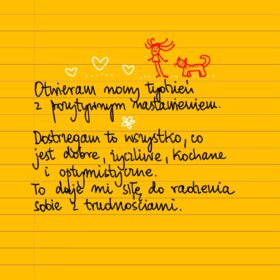 Otwieram nowy tydzień
z pozytywnym nastawieniem.
Dostrzegam to wszystko, co
jest dobre, życzliwe, kochane
i optymistyczne.
To daje mi siłę do radzenia
sobie z trudnościami.